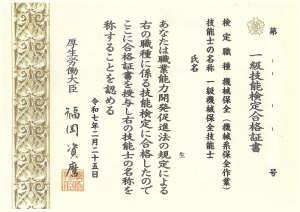 第　号
一級技能検定合格証書
検定職種　機械保全（機械系保全作業）
技能士の名称　一級機械保全技能士
氏名
生
あなたは職業能力開発促進法の規定による
右の職種に係る技能検定に合格したので
ここに合格証書を授与し右の技能士の名称を
称することを認める
令和七年二月二十五日
厚生労働大臣
福岡資麿